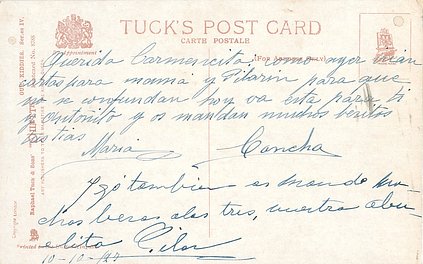 TUCK'S POST CARD
CARTE POSTALE
(For Address Only)
Querida Carmencita: como ayer iban
cartas para mama y Pilarin para que
no se confundan hoy va esta para ti
y Antoñito y os mandan muchos besitos
tus tias
Maria Concha
Yo tambien os mando mu-
chos besos a los tres, vuestra abue-
lita Pilar
10-10-
Raphael Tuck & Sons'